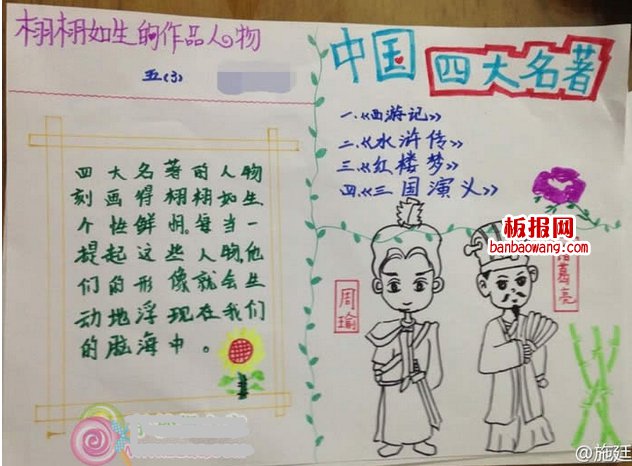 栩栩如生的作品人物
五(3)
四大名著的人物
刻画得栩栩如生
个性鲜明。每当一
提起这些人物,他
们的形像就会生
动地浮现在我们
的脑海中。
中国
四大名著
一、《西游记》
二、《水浒传》
三、《红楼梦》
四、《三国演义》
周瑜
葛亮
板报网
banbaowang.com
@施廷